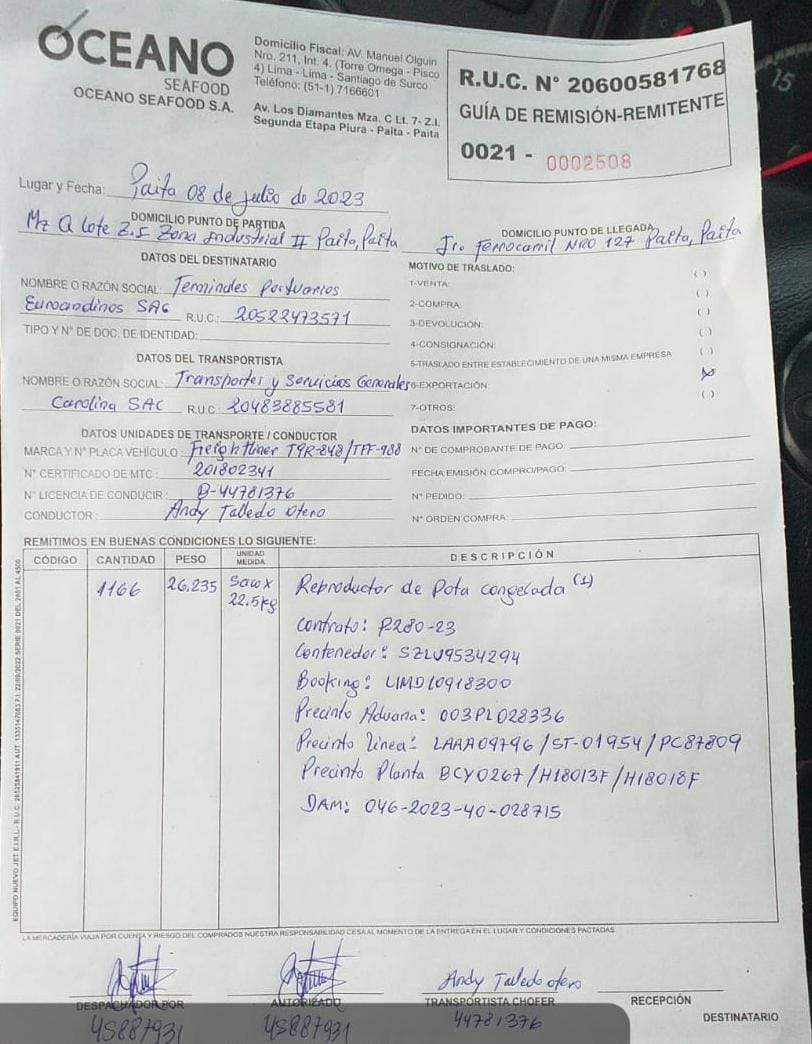 OCEANO
SEAFOOD
OCEANO SEAFOOD S.A.
Domicilio Fiscal: AV. Manuel Olguin
Nro. 211, Int. 4. (Torre Omega - Pisco
4) Lima - Lima - Santiago de Surco
Teléfono: (51-1) 7166601
Av. Los Diamantes Mza. C Lt. 7- Z.I.
Segunda Etapa Piura - Paita - Paita
R.U.C. N° 20600581768
GUÍA DE REMISIÓN-REMITENTE
0021 - 0002508
15
Lugar y Fecha: Paita 08 de julio de 2023
DOMICILIO PUNTO DE PARTIDA
Mz Q lote Z.I Zona Industrial II Paita, Paita
DOMICILIO PUNTO DE LLEGADA
Jr. Ferrocarril NRO 127 Paita, Paita
DATOS DEL DESTINATARIO
NOMBRE O RAZÓN SOCIAL: Terminales Portuarios
Euroandinos SAC R.U.C.: 20522473571
TIPO Y N° DE DOC. DE IDENTIDAD:
DATOS DEL TRANSPORTISTA
NOMBRE O RAZÓN SOCIAL: Transportes y Servicios Generales
Carolina SAC R.U.C.: 20483885581
DATOS UNIDADES DE TRANSPORTE / CONDUCTOR
MARCA Y N° PLACA VEHÍCULO: Freightliner T9R-848/TFF-988
N° CERTIFICADO DE MTC: 201802341
N° LICENCIA DE CONDUCIR: B-44781376
CONDUCTOR: Andy Talledo Otero
MOTIVO DE TRASLADO:
1-VENTA: ( )
2-COMPRA: ( )
3-DEVOLUCIÓN: ( )
4-CONSIGNACIÓN: ( )
5-TRASLADO ENTRE ESTABLECIMIENTO DE UNA MISMA EMPRESA ( )
6-EXPORTACIÓN: (x)
7-OTROS: ( )
DATOS IMPORTANTES DE PAGO:
N° DE COMPROBANTE DE PAGO:
FECHA EMISIÓN COMPRO/PAGO:
N° PEDIDO:
N° ORDEN COMPRA:
REMITIMOS EN BUENAS CONDICIONES LO SIGUIENTE:
CÓDIGO CANTIDAD PESO UNIDAD MEDIDA DESCRIPCIÓN
1166 26,235 Saco x 22.5kg Reproductor de Pota congelada (1)
Contrato: P280-23
Contenedor: SZLU9534294
Booking: LIMD10918300
Precinto Aduana: 003PL028336
Precinto Linea: LAAA09796/ST-01954/PC87809
Precinto Planta BCY0267/H18013F/H18018F
DAM: 046-2023-40-028715
LA MERCADERÍA VIAJA POR CUENTA Y RIESGO DEL COMPRADOS NUESTRA RESPONSABILIDAD CESA AL MOMENTO DE LA ENTREGA EN EL LUGAR Y CONDICIONES PACTADAS
Andy Talledo Otero
DESPACHADOR POR AUTORIZADO TRANSPORTISTA CHOFER RECEPCIÓN
45887931 45887931 44781376 DESTINATARIO